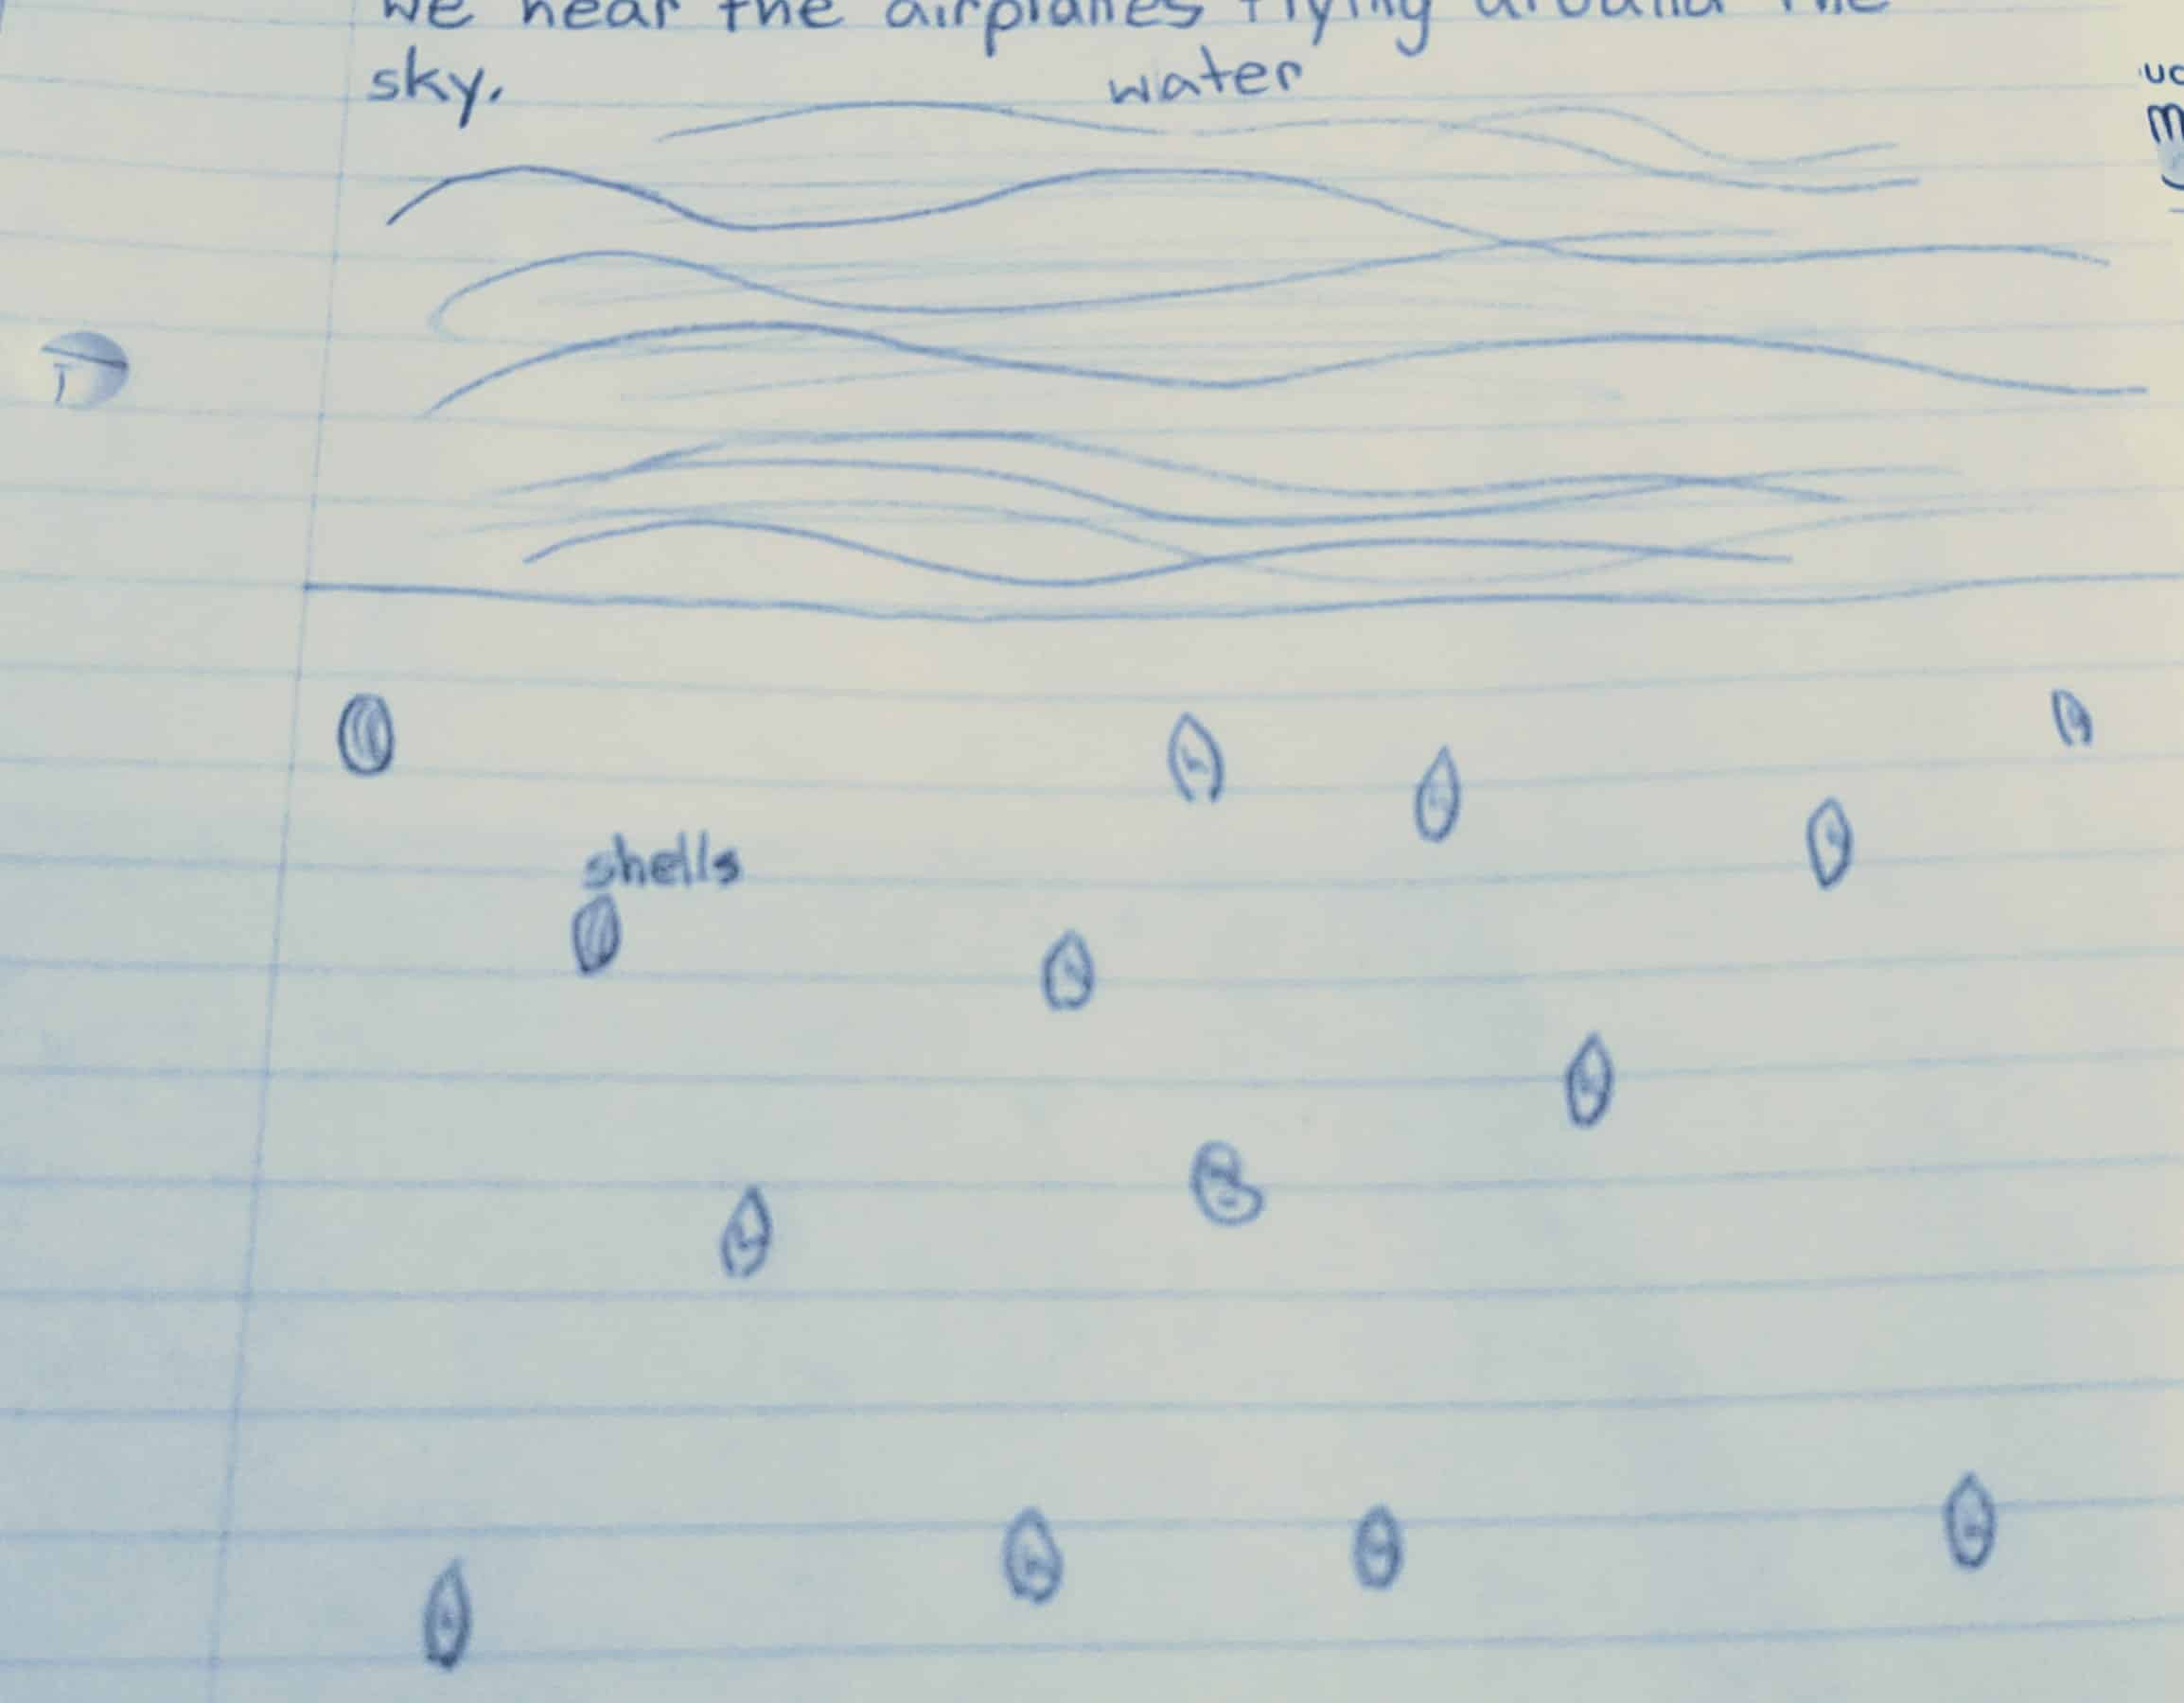 we hear the airplanes flying around the
sky.
water
shells